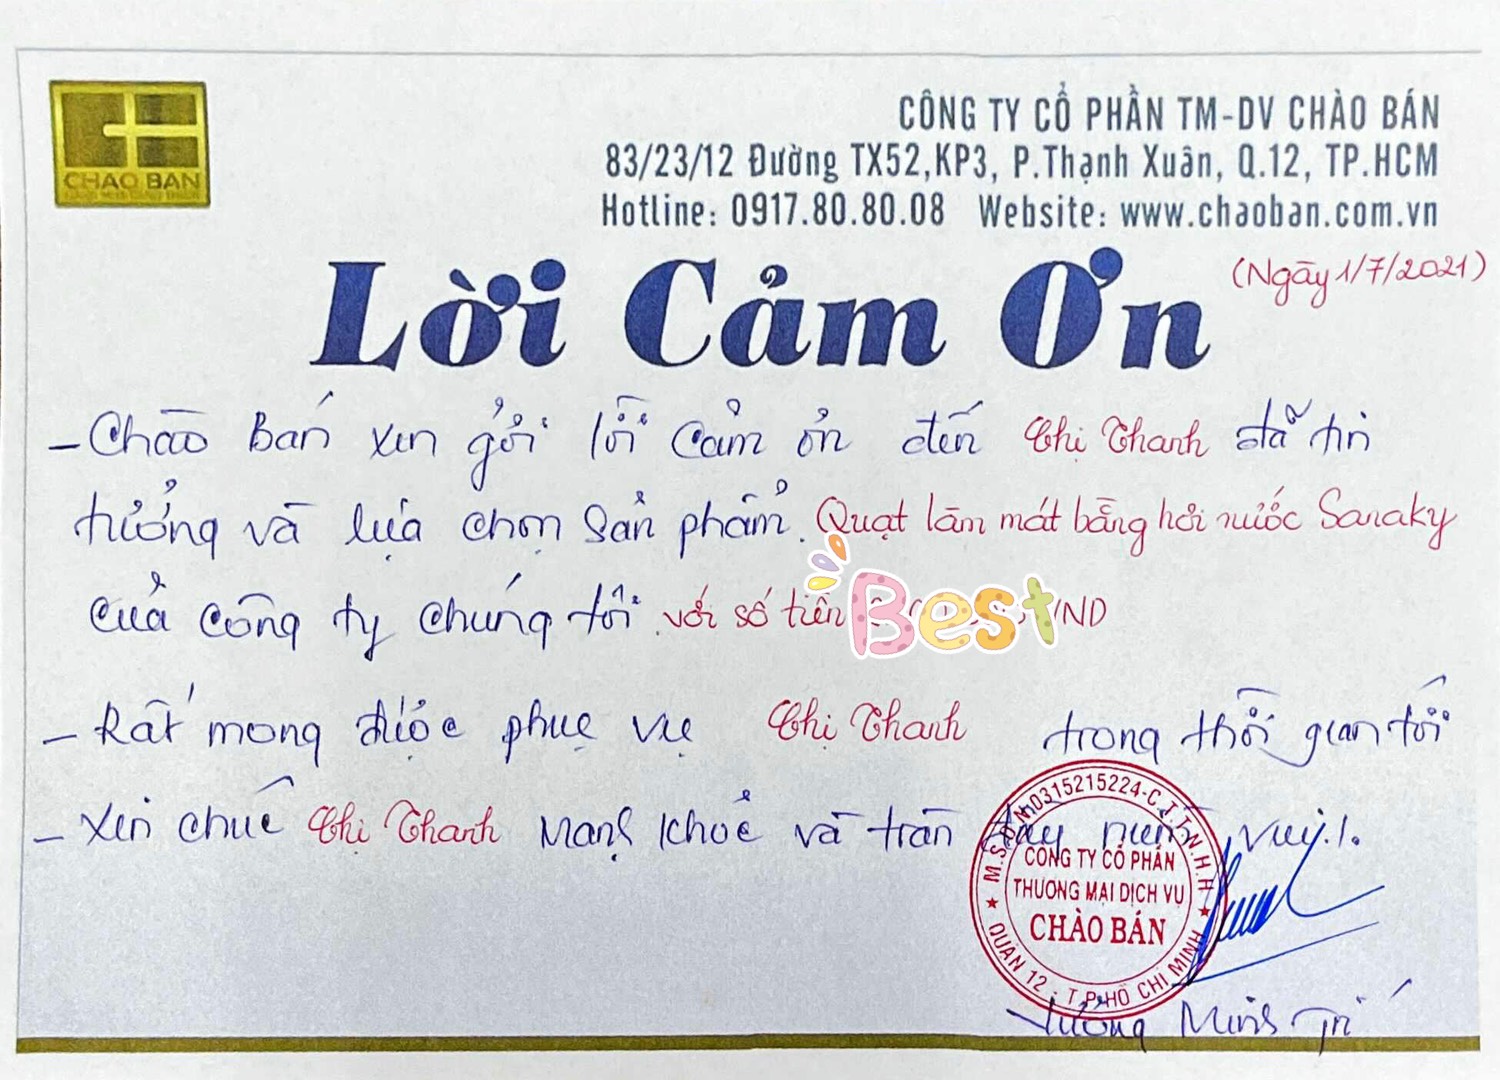 CHAO BAN
CÔNG TY CỔ PHẦN TM-DV CHÀO BÁN
83/23/12 Đường TX52,KP3, P.Thạnh Xuân, Q.12, TP.HCM
Hotline: 0917.80.80.08 Website: www.chaoban.com.vn
Lời Cảm Ơn
(Ngày 1/7/2021)
- Chào Bán xin gởi lời cảm ơn đến Chị Thanh đã tin
tưởng và lựa chọn sản phẩm. Quạt làm mát bằng hơi nước Sanaky
của công ty chúng tôi với số tiền VND
Best
- Rất mong được phục vụ Chị Thanh trong thời gian tới
- Xin chúc Chị Thanh mạnh khoẻ và tràn đầy niềm vui./.
M.S.D.N:0315215224-C.T.T.N.H.H
CÔNG TY CỔ PHẦN
THƯƠNG MẠI DỊCH VỤ
CHÀO BÁN
QUẬN 12 - T.P HỒ CHÍ MINH
Minh Trí